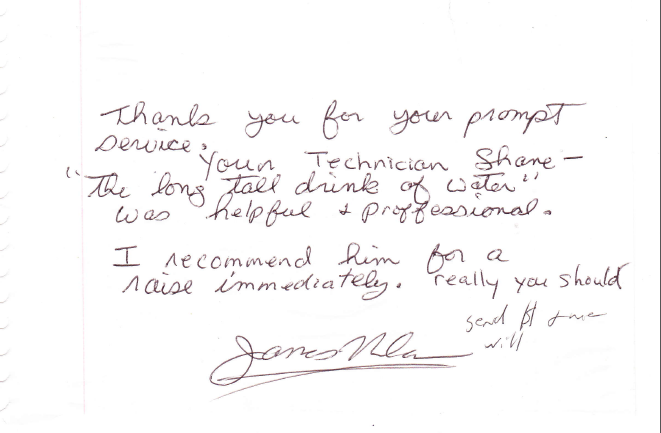 Thank you for your prompt
service.
Your Technician Shane –
"The long tall drink of water"
was helpful & proffessional.
I recommend him for a
raise immediately. really you should
send
will
James